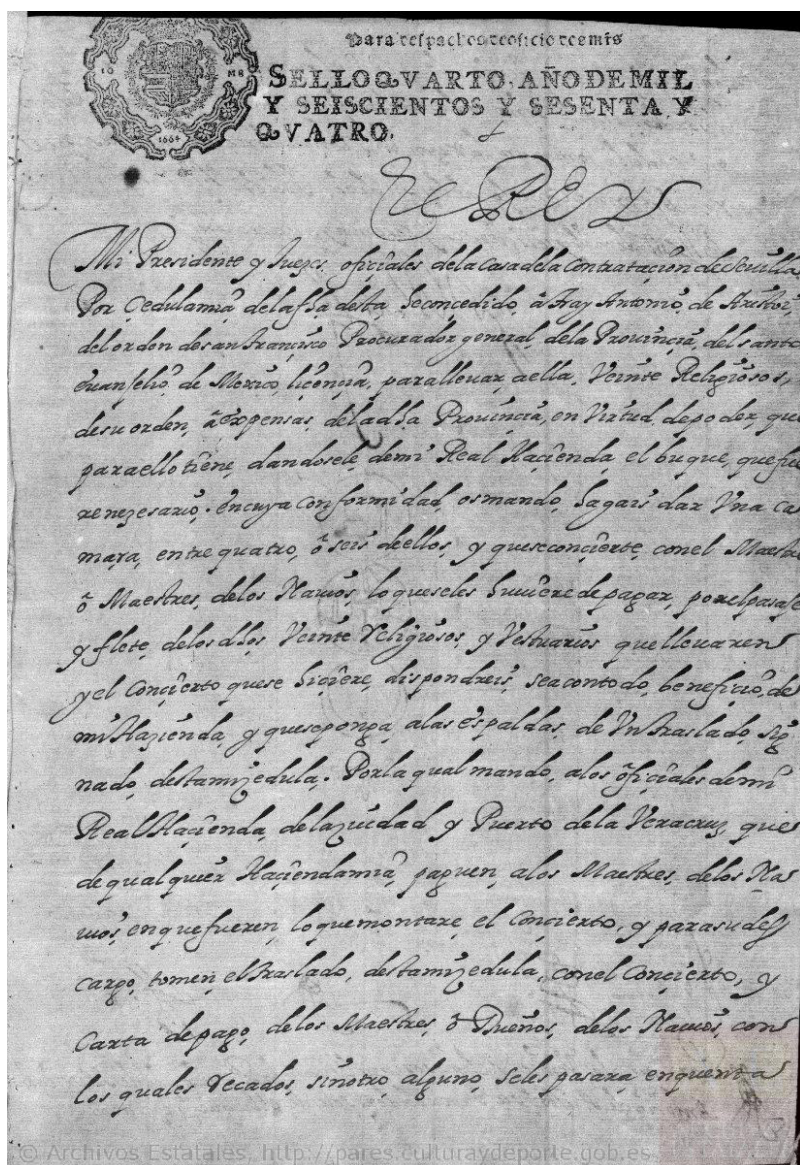 Para despachos de oficio dos mrs
SELLO QVARTO, AÑO DE MIL
Y SEISCIENTOS Y SESENTA Y
QVATRO.
1664
El Rey
Mi Presidente y Juezes oficiales de la Casa de la Contratación de Sevilla
Por Cedula mia de la fha desta he concedido a fray Antonio de
del orden de san françisco Procurador general de la Provinçia del santo
evanjelio de Mexico liçençia para llevar a ella Veinte Religiosos,
de su orden, a expensas de la dha Provinçia, en Virtud de poder, que
para ello tiene, dandosele de mi Real Haçienda el buque, que fue
re nezesario. en cuya conformidad os mando hagais dar Una ca
mara, entre quatro, o seis de ellos, y que se conçierte con el Maestre
o Maestres de los Navios lo que se les huviere de pagar, por el pasaje
y flete de los dhos Veinte religiosos, y Vestuarios que llevaren
y el Conçierto que se hiçiere, dispondreis sea con todo benefiçio de
mi Hazienda y que se ponga a las espaldas de Un traslado sig
nado desta mi zedula. Por la qual mando a los ofiçiales de mi
Real Haçienda de la ziudad y Puerto de la Veracruz que
de qualquier Haçienda mia paguen a los Maestres de los Na
vios en que fueren lo que montare el Conçierto, y para su des
cargo tomen el traslado desta mi zedula con el Conçierto, y
Carta de pago de los Maestres o Dueños de los Navios, con
los quales recados, sin otro alguno, se les pasara en quenta
© Archivos Estatales, http://pares.culturaydeporte.gob.es